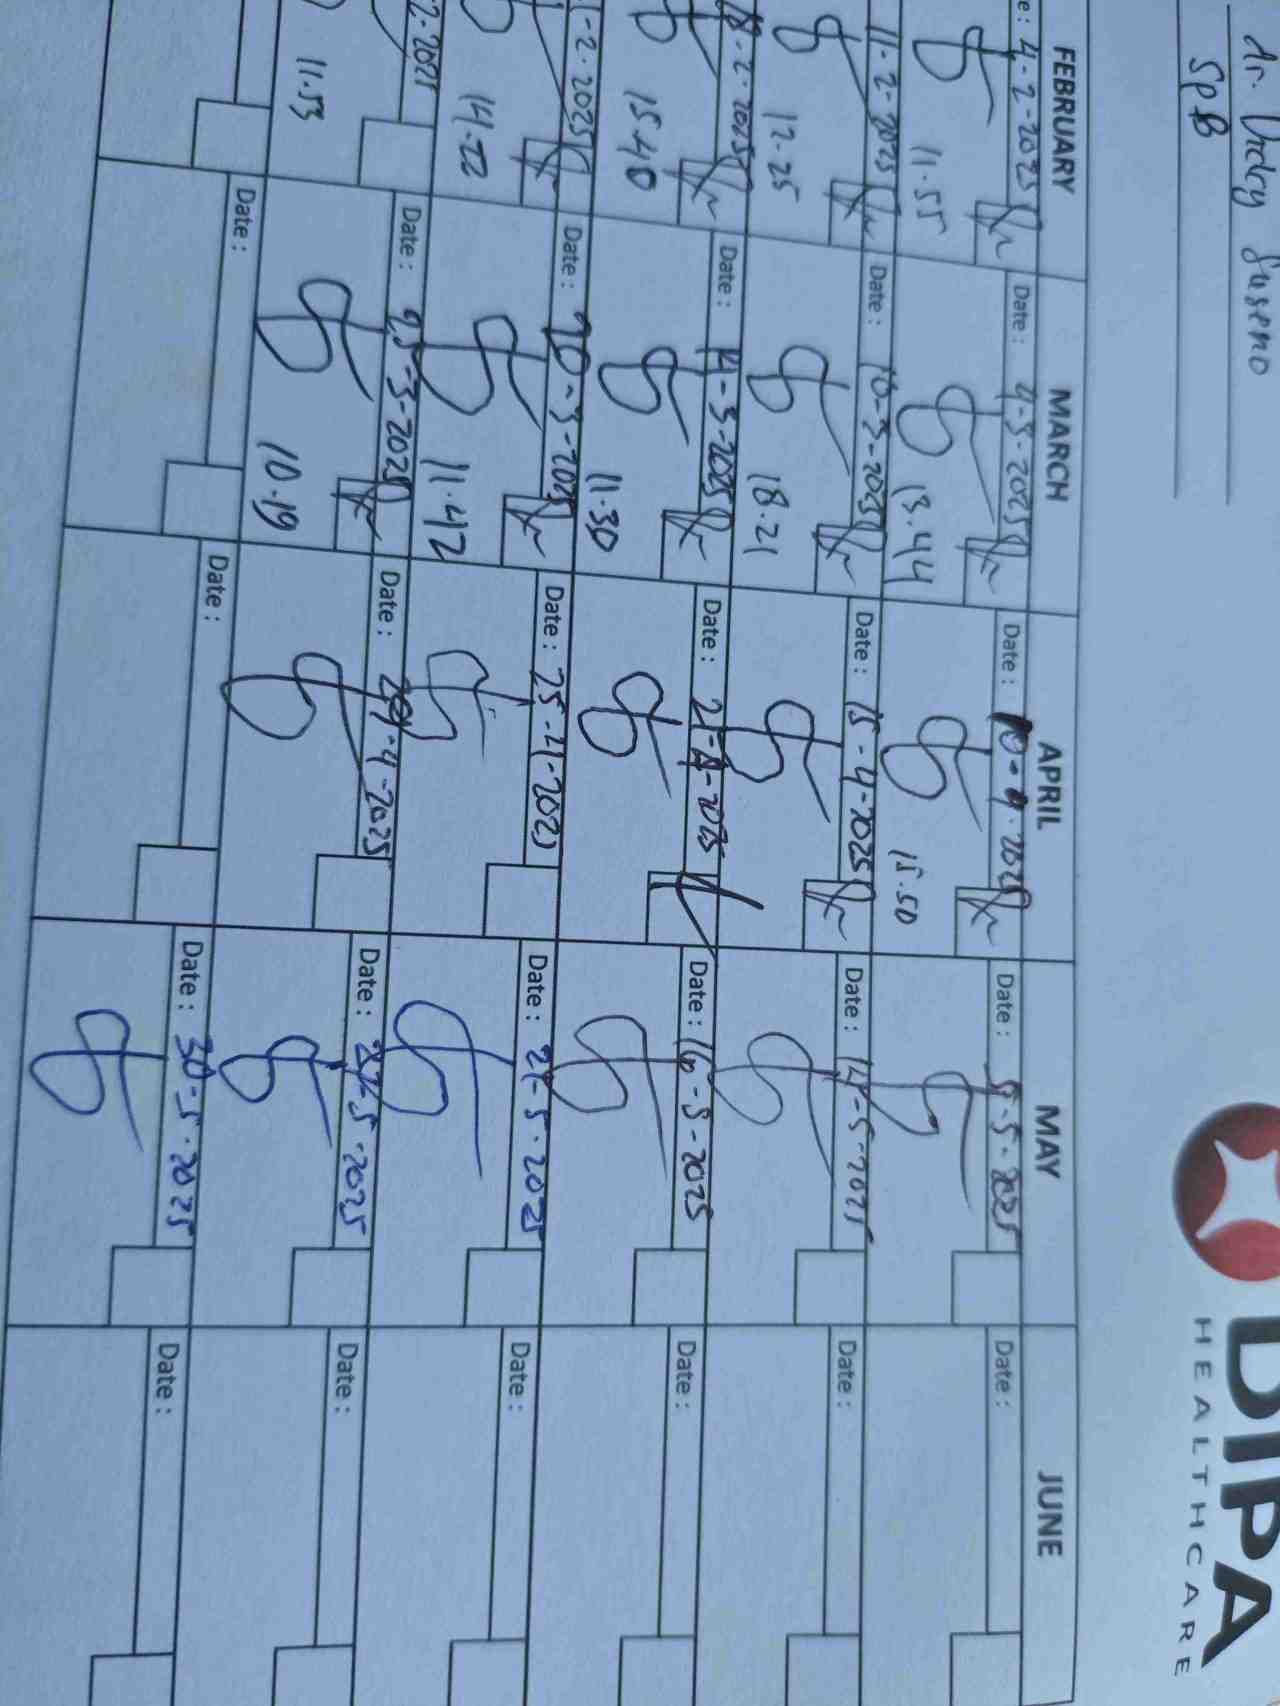 dr. Dicky Suseno
SpB
DIPA
HEALTHCARE
FEBRUARY MARCH APRIL MAY JUNE
e: 4-2-2025 Date: 4-3-2025 Date: 10-4-2025 Date: 5-5-2025 Date:
11.55 13.44 15.50
11-2-2025 Date: 10-3-2025 Date: 15-4-2025 Date: 14-5-2025 Date:
12.25 18.21
18-2-2025 Date: 14-3-2025 Date: 21-4-2025 Date: 16-5-2025 Date:
15.40 11.30
-2-2025 Date: 20-3-2025 Date: 25-4-2025 Date: 21-5-2025 Date:
14.22 11.42
2-2025 Date: 25-3-2025 Date: 29-4-2025 Date: -5-2025 Date:
11.53 10.19
Date: Date: Date: 30-5-2025 Date: